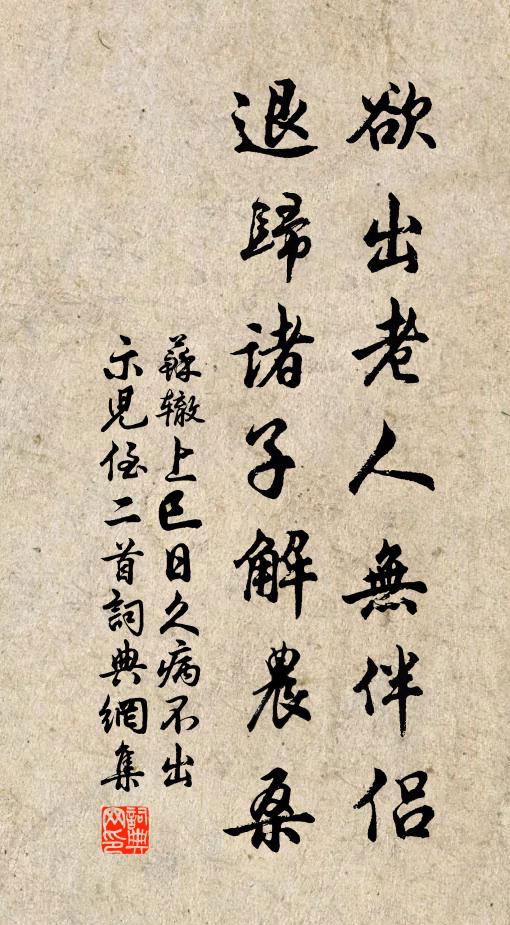 欲出老人無伴侶
退歸諸子解農桑
蘇辙上巳日久病不出
示児侄二首詞典網集
詞典
网印